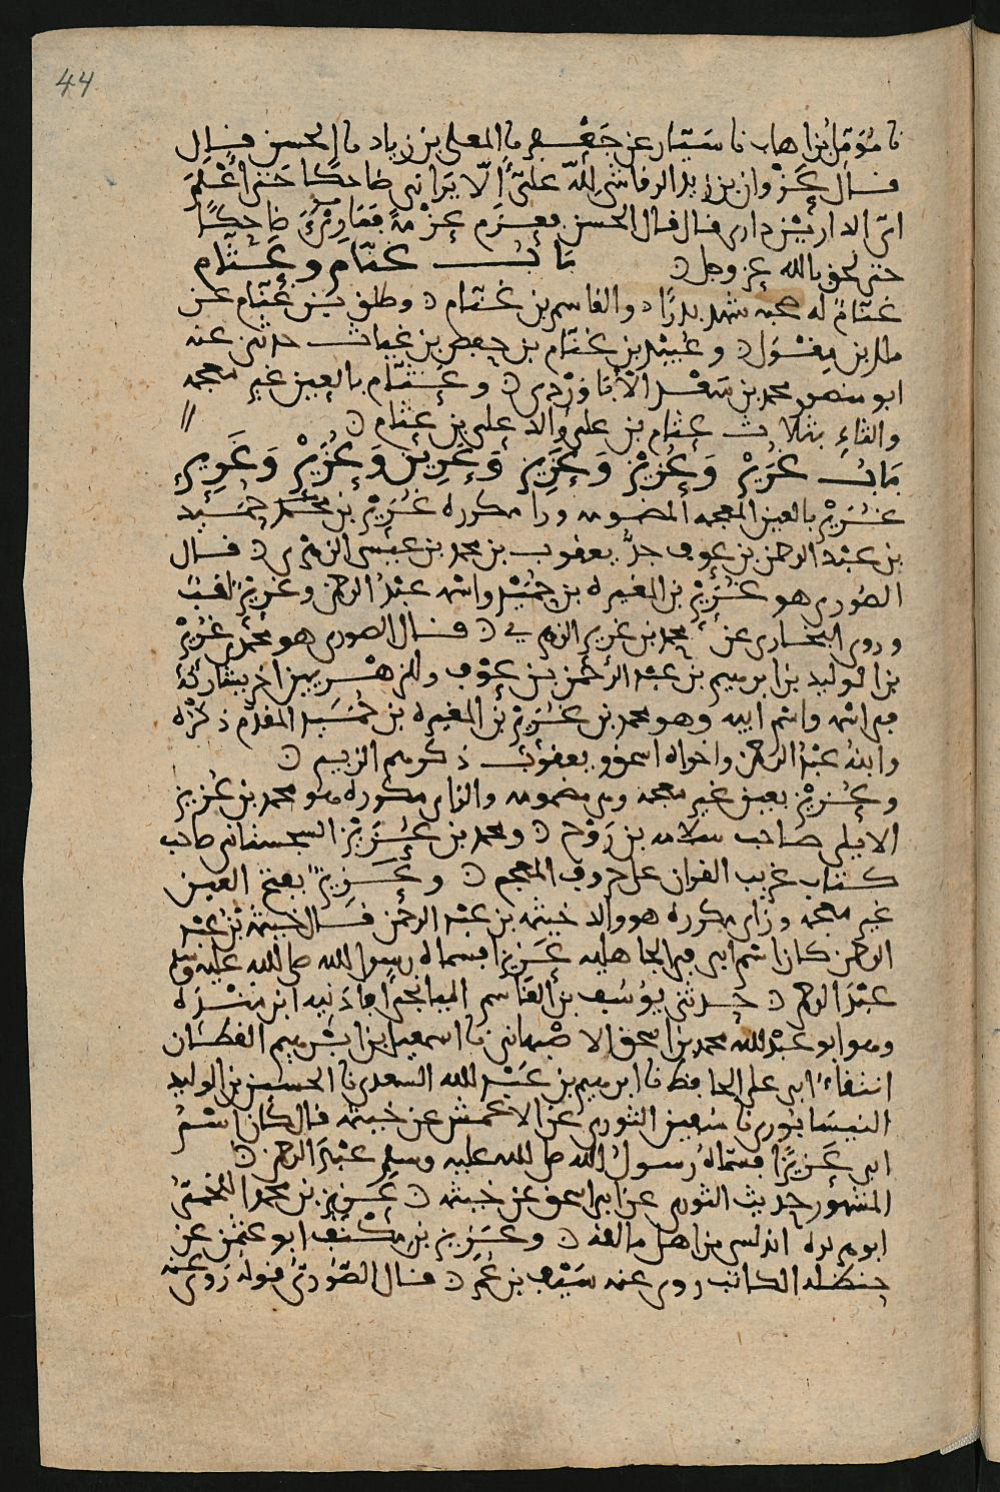 44
نا مؤمل بن اهاب نا سيار عن جعفر نا المعلى بن زياد نا الحسن قال
قال غزوان بن زيد الرقاشي لله علي الا يراني ضاحكا حتى اعلم
اي الدارين داري قال قال الحسن فعزم عزمة فما رئي ضاحكا
حتى لحق بالله عز وجل باب غنام وعثام
غنام له صحبه شهد بدرا والقاسم بن غنام وطلق بن غنام عن
ملك بن مغول وعبيد بن غنام بن حفص بن غياث حدثني عنه
ابو منصور محمد بن سعد الباوردي وعثام بالعين غير معجمه
والثاء بثلاث عثام بن علي والد علي بن عثام
باب غرير وعزيز وعزيز وعرين وعزير وغوير
غرير بالغين المعجمه المضمومه ورا مكرره غرير بن حميد
بن عبد الرحمن بن عوف جد يعقوب بن محمد بن عيسى الزهري قال
الصوري هو غرير بن المغيره بن حميد واسمه عبد الرحمن وغرير لقب
وروى البخاري عن محمد بن غرير الزهري قال الصوري هو محمد بن غرير
بن الوليد بن ابرهيم بن عبد الرحمن بن عوف وللزهريين اخر يشاركه
في اسمه واسم ابيه وهو محمد بن غرير بن المغيره بن حميد المقدم ذكره
وابنه عبد الرحمن واخواه اسحق ويعقوب ذكرهم الزبير
وعزيز بعين غير معجمه وهي مضمومه والزاي مكرره هو محمد بن عزيز
الايلي صاحب سلامه بن روح ومحمد بن عزيز السجستاني صاحب
كتاب غريب القران على حروف المعجم وعزيز بفتح العين
غير معجمه وزاي مكرره هو والد خيثمه بن عبد الرحمن قال خيثمه بن عبد
الرحمن كان اسم ابي في الجاهليه عزيزا فسماه رسول الله صلى الله عليه وسلم
عبد الرحمن حدثني يوسف بن القاسم الميانجي افادنيه ابن منده
وهو ابو عبد الله محمد بن اسحق الاصبهاني نا اسمعيل بن ابرهيم القطان
انتقاء ابي علي الحافظ نا ابرهيم بن عبد الله السعدي نا الحسين بن الوليد
النيسابوري نا سفين الثوري عن الاعمش عن خيثمه قال كان اسم
ابي عزيزا فسماه رسول الله صلى الله عليه وسلم عبد الرحمن
المشهور حديث الثوري عن ابي اسحق عن خيثمه عزيز بن محمد اللخمي
ابو هريره اندلسي من اهل مالقه وعزيز بن مكنف ابو عثمن عن
حنظله الكاتب روى عنه سيف بن عمر قال الصوري قوله روى عنه